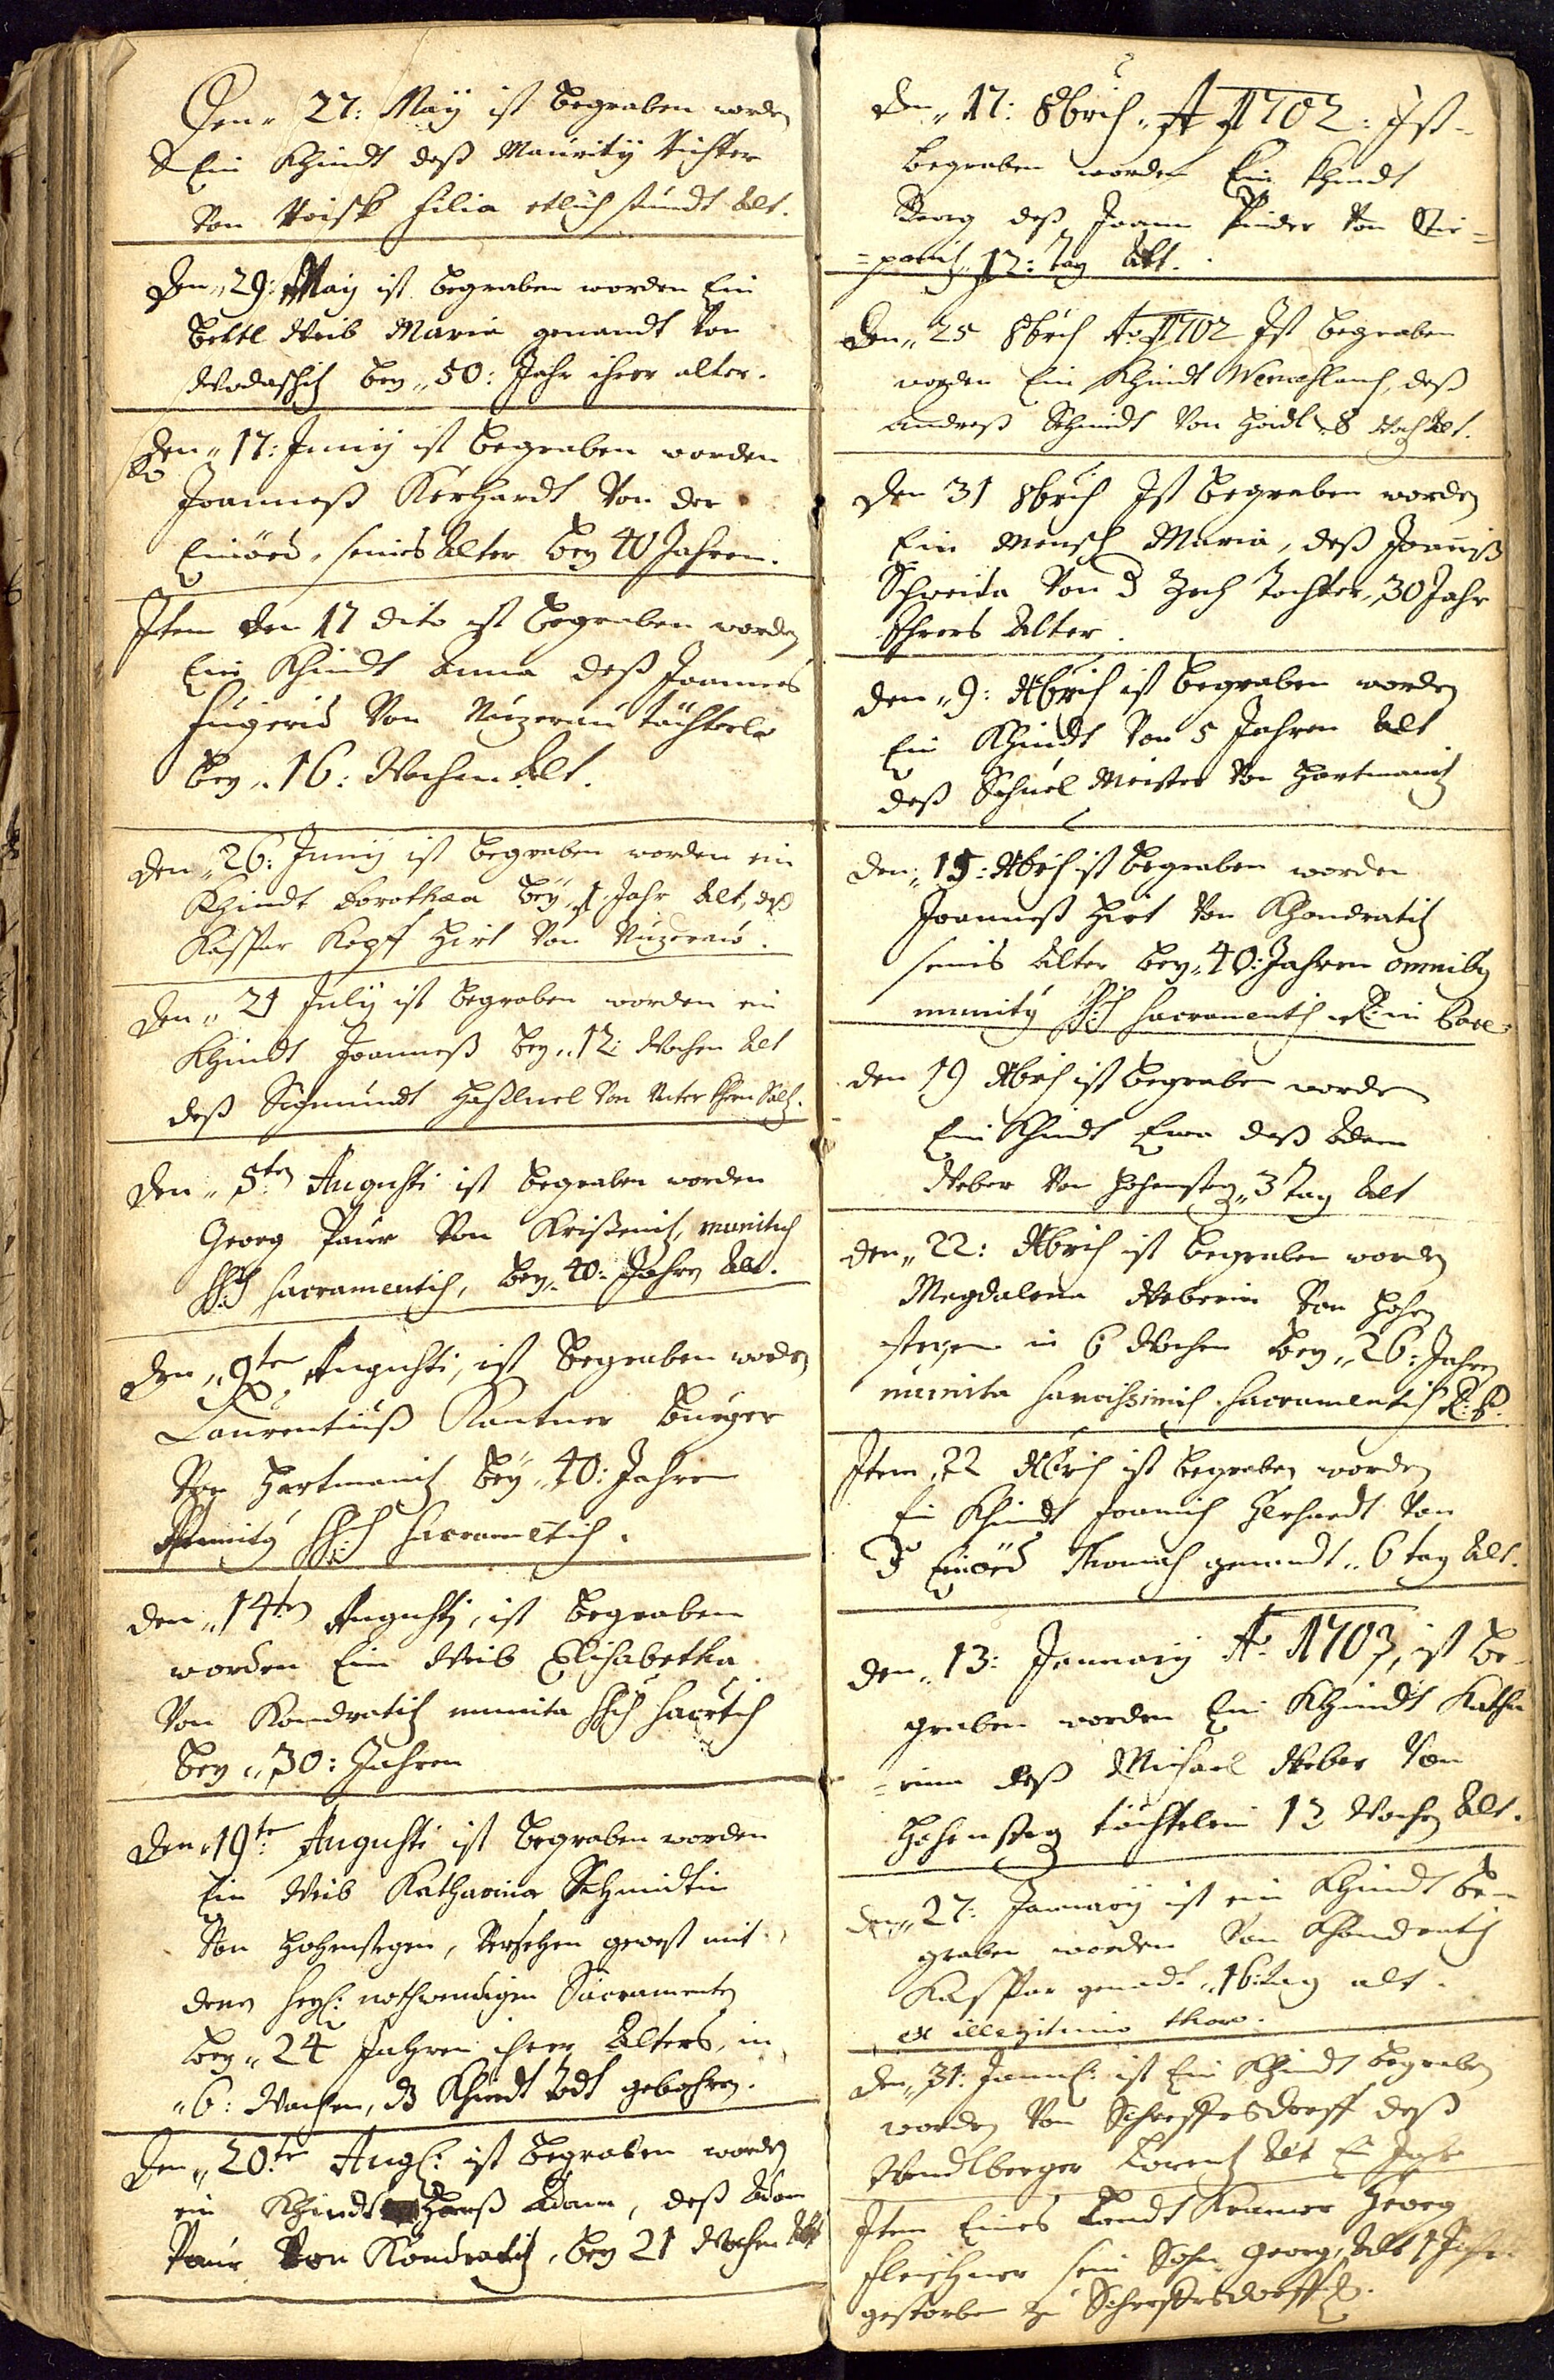 Den 27: Maÿ ist begraben worden
Ein Khindt deß Mauritÿ Richter
Von filia etlich stundt Alt.
Den 29: Maÿ ist begraben worden Ein
Bettl Weib Maria genandt Von
Wodaschitz beÿ 50: Jahr ihrer alter.
Den 17: Junÿ ist begraben worden
Joanneß Kerhardt Von der
Einöed, seines Alter beÿ 40 Jahren.
Item den 17 dito ist begraben worden
Ein Khindt Anna deß Joannes
Von Nuzerau töchterle
beÿ 16: Wochen Alt.
Den 26: Junÿ ist begraben worden ein
Khindt Dorothæa beÿ 1 Jahr Alt, deß
Kaspar Kopff Hirt Von Nuzerau.
Den 21 Julÿ ist begraben worden ein
Khindt Joanneß beÿ 12: Wochen Alt
deß Sigmundt Von Unter Khörn Saltz.
Den 5ten Augusti ist begraben worden
Georg Paur Von munitus
SSis sacramentis, beÿ 40: Jahren Alt.
Den 9te Augusti, ist begraben worden
Laurentiuß Kantner Burger
Von Hartmanitz beÿ 40: Jahren
SSis sacrametis.
Den 14ten Augusti, ist begraben
worden Ein Weib Elisabetha
Von Kondratitz munita SSis sacrtis
beÿ 30: Jahren
Den 19te Augusti ist begraben worden
Ein Weib Katharina Schmidtin
Von Hohenstegen, Versehen gewest mit
denen heÿl: nothwendigen Sacramenten
beÿ 24 Jahren ihrer Alters, in
6: Wochen, dz Khindt todt gebohren.
Den 20te Aug: ist begraben worden
ein Khindt Adam, deß Adam
Paur Von Kondratitz, beÿ 21 Wochen Alt
Den 17: 8bris A 1702: Ist
begraben worden Ein Khindt
Georg deß Joann Pinder Von Stie=
=panitz 12: Tag Alt.
Den 25 8bris Ao 1702 Ist begraben
worden Ein Khindt Wenceslaus, deß
Andreß Schmidt Von Haidl 8 Woch Alt.
Den 31 8bris Ist begraben worden
Ein Mensch Maria, deß Joaniß
Von d Zech Tochter, 30 Jahr
Ihrers Alter.
Den 9: Xbris ist begraben worden
Ein Khindt Von 5 Jahren Alt
deß Schuel Meister Von Hartmanitz
Den 15: Xbris ist begraben worden
Joanneß Hirt Von Khondratitz
seines Alter beÿ 40: Jahren omnibus
munitus SSis sacramentis R: in Pace
Den 19 Xbris ist begraben worden
Ein Khindt Eva deß Adam
Weber Von Hohensteg 3 Tag Alt
Den 22: Xbris ist begraben worden
Magdalena Weberin Von Hohen
stegen in 6 Wochen beÿ 26: Jahren
munita sacrissimis sacramentis R: P.
Item 22 Xbris ist begraben worden
Ein Khindt Joannis Kerhardt Von
d Einöed Thomas genandt 6 tag Alt.
Den 13: Januarÿ Ao 1703, ist be=
graben worden Ein Khindt Katha
=rina deß Michael Weber Von
Hohensteg töchterlein 13 Wochen Alt.
Den 27: Januarÿ ist ein Khindt be=
graben worden Von Khondratitz
Kaspar genandt 16: tag alt.
ex illegitimo thoro.
Den 31: Janua: ist Ein Khindt begraben
worden Von deß
Wendlberger Lorentz Alt Ein Jahr
Item Eines Landt Kramer Georg
Fleischner sein Sohn Georg, Alt 1 Jahr
gestorben zu